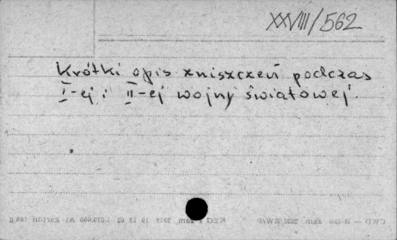 XXVIII/562
Krótki opis zniszczeń podczas
I-ej i II-ej wojny światowej.